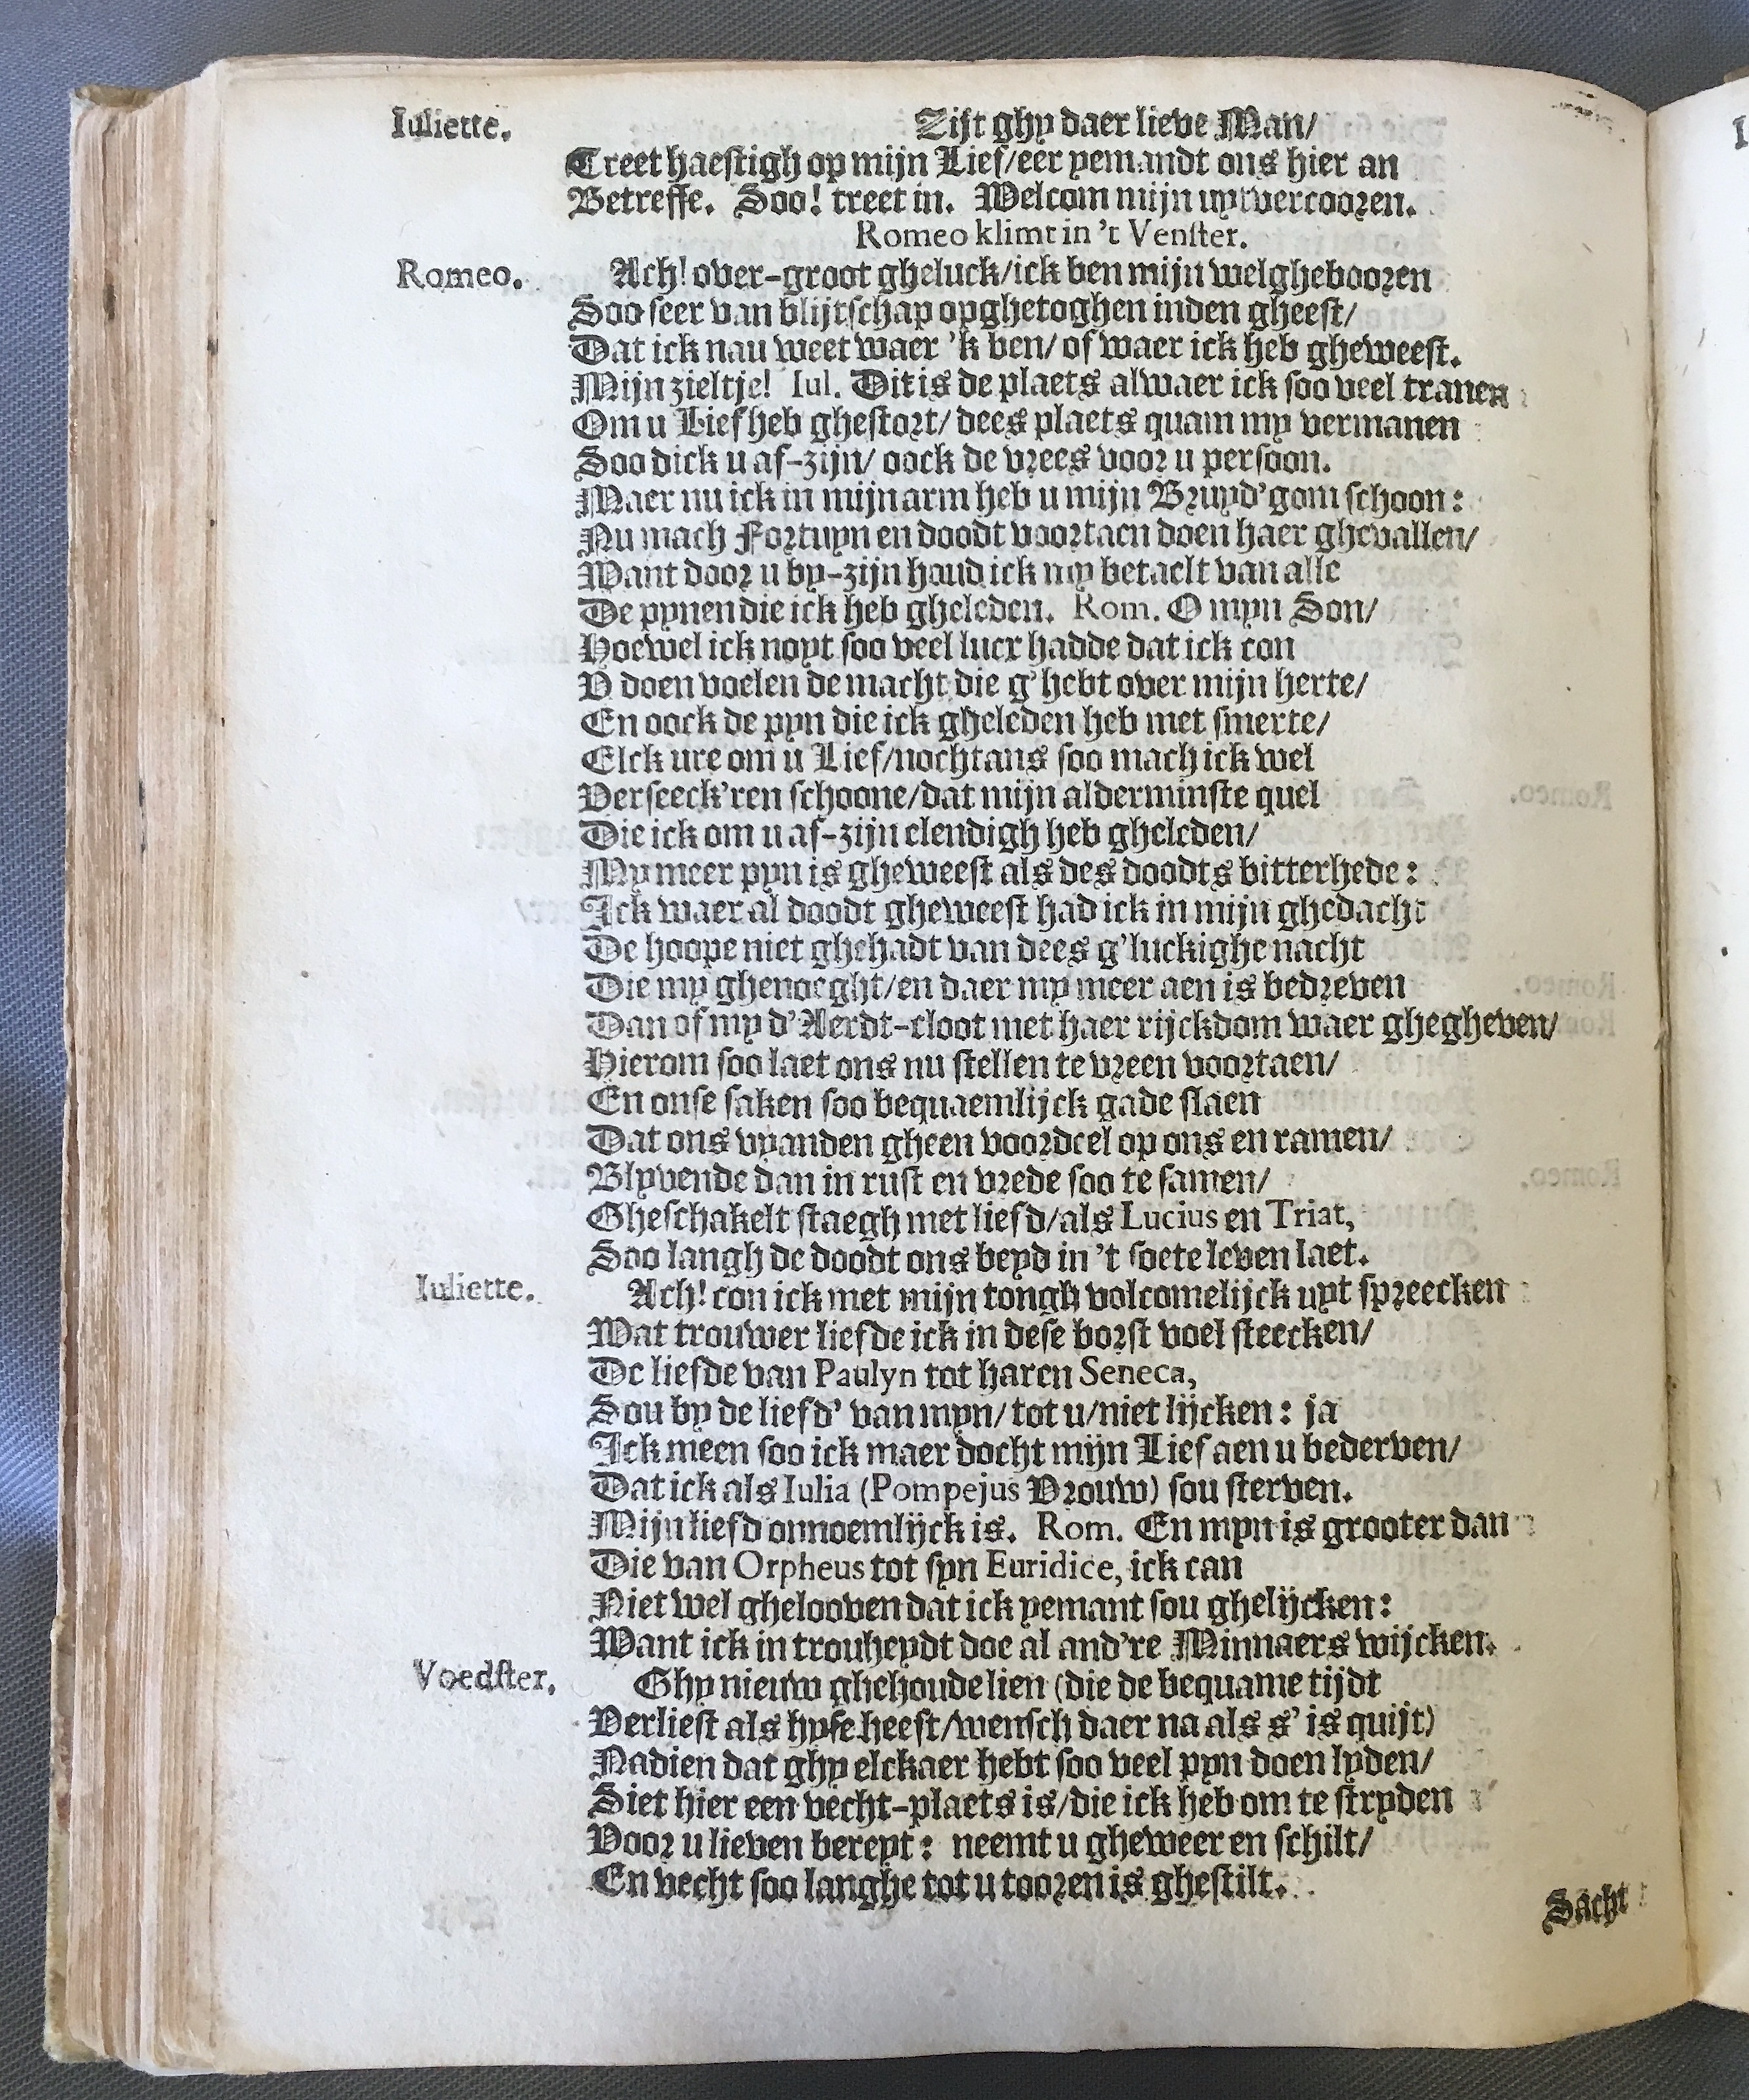 Iuliette. Zijt ghy daer lieve Man/
Treet haestigh op mijn Lief/eer yemandt ons hier an
Betreffe. Soo! treet in. Welcom mijn uytvercooren.
Romeo klimt in 't Venster.
Romeo. Ach! over-groot gheluck/ick ben mijn welghebooren
Soo seer van blijtschap opghetoghen inden gheest/
Dat ick nau weet waer 'k ben/ of waer ick heb gheweest.
Mijn zieltje! Iul. Dit is de plaets alwaer ick soo veel tranen
Om u Lief heb ghestort/ dees plaets quam my vermanen
Soo dick u af-zijn/ oock de vrees voor u persoon.
Maer nu ick in mijn arm heb u mijn Bruyd'gom schoon:
Nu mach Fortuyn en doodt voortaen doen haer ghevallen/
Want door u by-zijn houd ick my betaelt van alle
De pynen die ick heb gheleden. Rom. O myn Son/
Hoewel ick noyt soo veel lucx hadde dat ick con
V doen voelen de macht die g'hebt over mijn herte/
En oock de pyn die ick gheleden heb met smerte/
Elck ure om u Lief/nochtans soo mach ick wel
Verseeck'ren schoone/dat mijn alderminste quel
Die ick om u af-zijn elendigh heb gheleden/
My meer pyn is gheweest als des doodts bitterhede:
Ick waer al doodt gheweest had ick in mijn ghedacht
De hoope niet ghehadt van dees g'luckighe nacht
Die my ghenoeght/en daer my meer aen is bedreven
Dan of my d'Aerdt-cloot met haer rijckdom waer ghegheven/
Hierom soo laet ons nu stellen te vreen voortaen/
En onse saken soo bequaemlijck gade slaen
Dat ons vyanden gheen voordeel op ons en ramen/
Blyvende dan in rust en vrede soo te samen/
Gheschakelt staegh met liefd/als Lucius en Triat,
Soo langh de doodt ons beyd in 't soete leven laet.
Iuliette. Ach! con ick met mijn tongh volcomelijck uyt spreecken
Wat trouwer liefde ick in dese borst voel steecken/
De liefde van Paulyn tot haren Seneca,
Sou by de liefd' van myn/ tot u/niet lijcken: ja
Ick meen soo ick maer docht mijn Lief aen u bederven/
Dat ick als Iulia (Pompejus Vrouw) sou sterven.
Mijn liefd onnoemlijck is. Rom. En myn is grooter dan
Die van Orpheus tot syn Euridice, ick can
Niet wel ghelooven dat ick yemant sou ghelijcken:
Want ick in trouheydt doe al and're Minnaers wijcken.
Voedster. Ghy nieuw ghehoude lien (die de bequame tijdt
Verliest als hyse heeft/wensch daer na als s' is quijt)
Nadien dat ghy elckaer hebt soo veel pyn doen lyden/
Siet hier een vecht-plaets is/die ick heb om te stryden
Voor u lieven bereyt: neemt u gheweer en schilt/
En vecht soo langhe tot u tooren is ghestilt.
Sacht